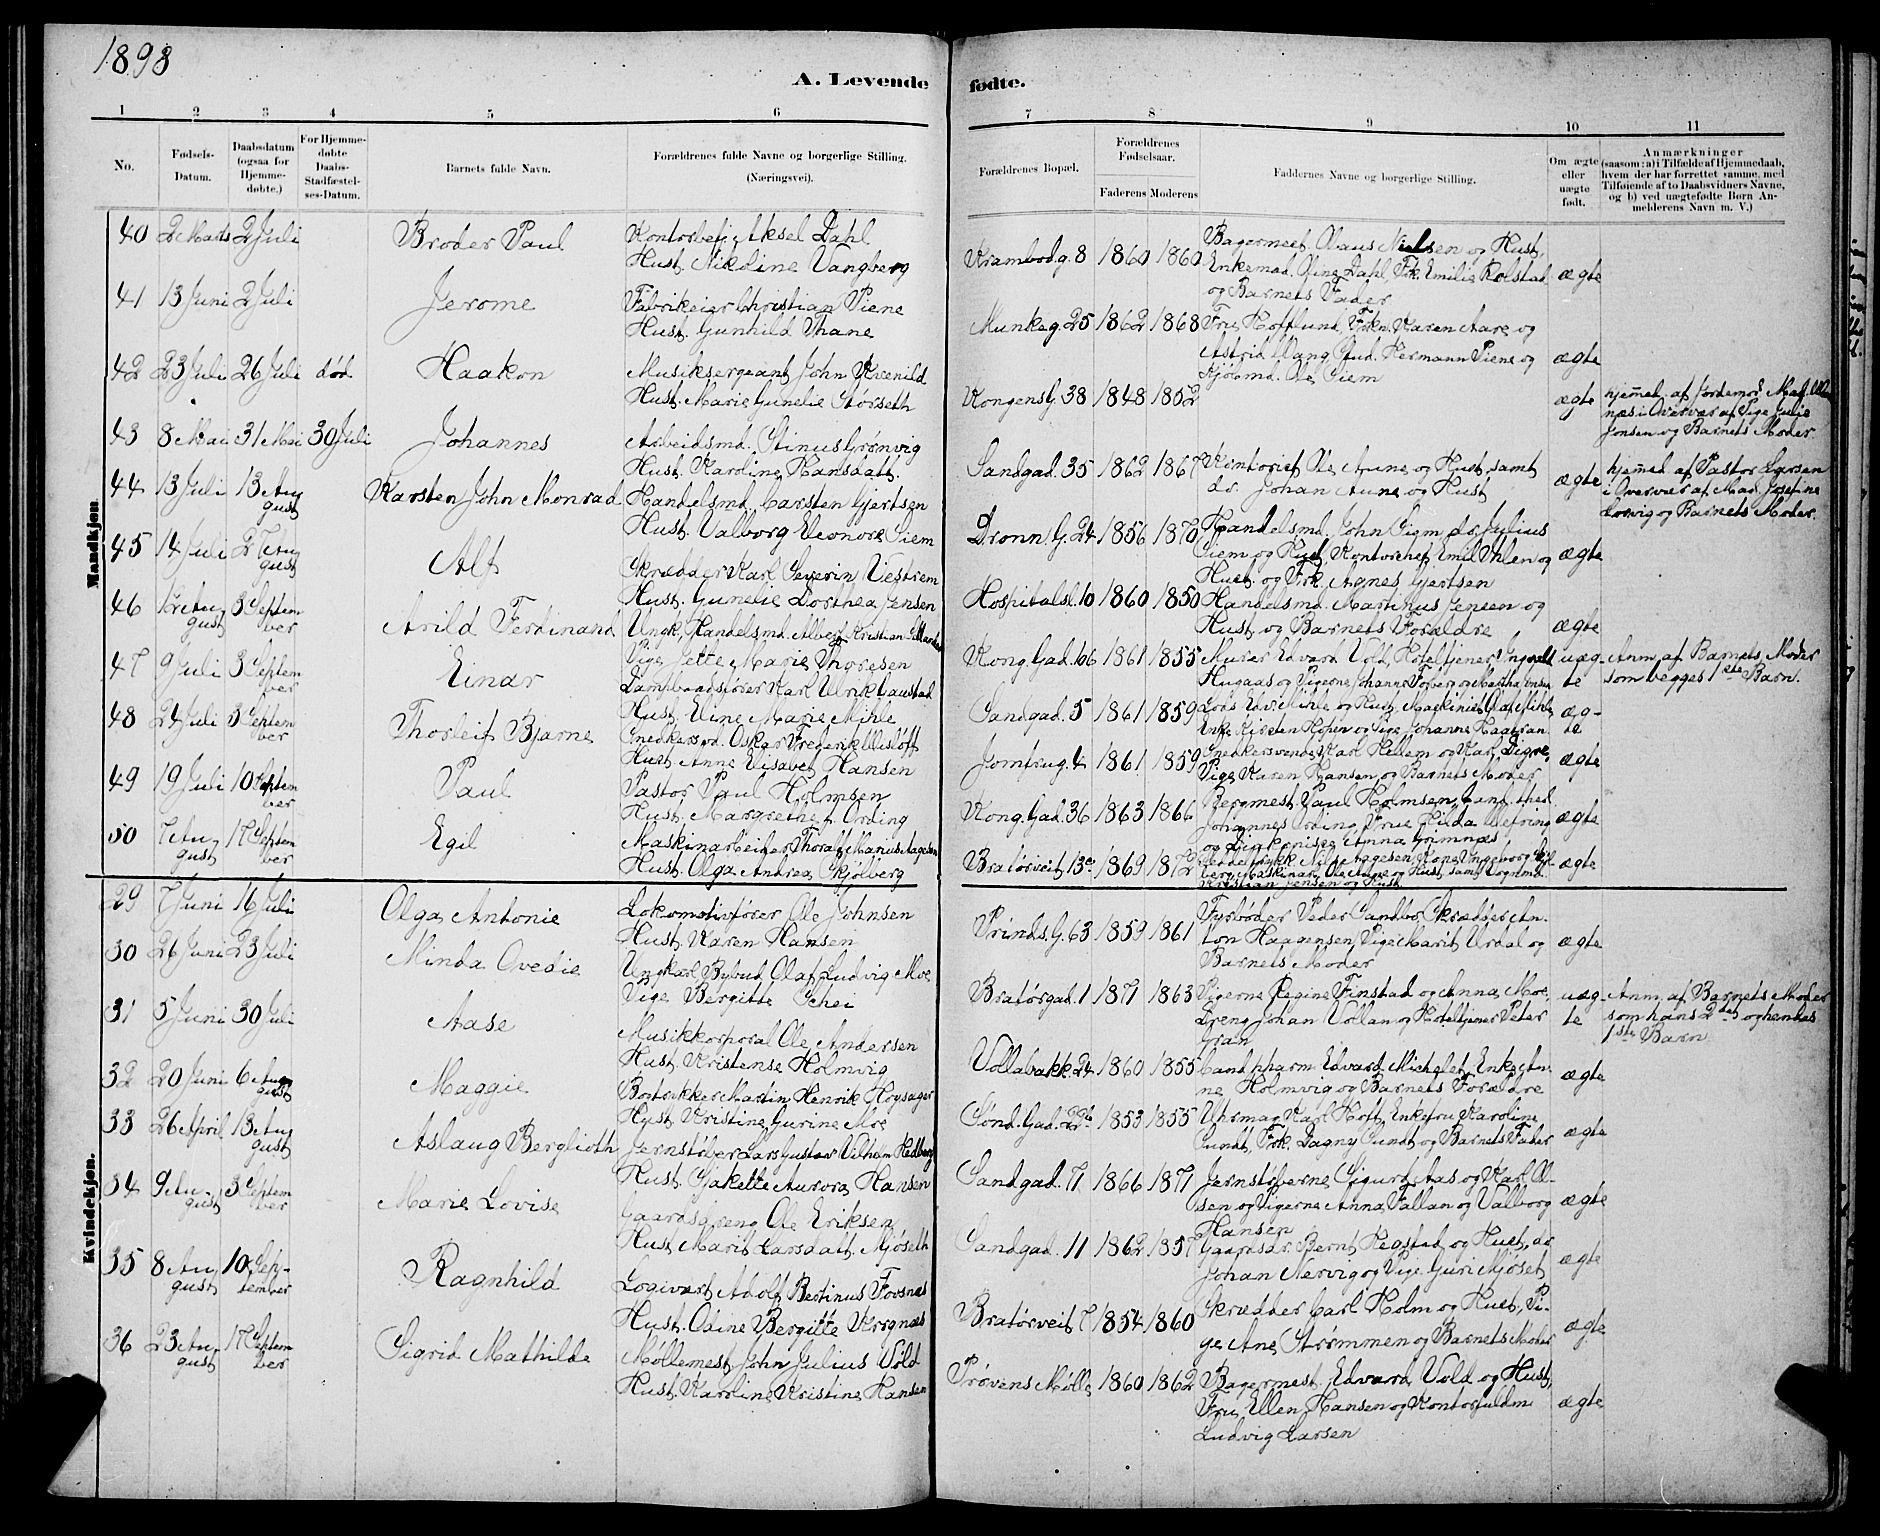 1893
A. Levende
1 2 3 4 5 6
No.
Fødsels-Datum.
Daabsdatum (ogsaa for Hjemme-døbte.)
For Hjemme-døbte Daabs-Stadfæstel-ses-Datum.
Barnets fulde Navn.
Forældrenes fulde Navne og borgerlige Stilling. (Næringsvei).
Mandkjøn
40 2 Marts 2 Juli Broder Paul Kontorbetj. Aksel Dahl
Hust. Nikoline Vangberg
41 13 Juni 2 Juli Jerome Fabrikeier Christian Piene
Hust. Gunhild Thane
42 23 Juli 26 Juli død Haakon Musiksergeant John Kvenild
Hust. Marie Gunelie Størseth
43 8 Mai 31 Mai 30 Juli Johannes Arbeidsmd. Stinus Grønvig
Hust. Karoline Hansdatt.
44 13 Juli 13 August Karsten John Monrad Handelsmd. Carsten Gjertsen
Hust. Valborg Eleonore Siem
45 14 Juli 27 August Alf Skrædder Karl Severin Vestrem
Hust. Gunelie Dorthea Jensen
46 1ste August 3 September Arild Ferdinand Ungk. Handelsmd. Albert Kristian
Pige Jette Marie Thoresen
47 9 Juli 3 September Einar Dampbaadsfører Karl Ulrik Caustad
Hust. Eline Marie Mihle
48 24 Juli 3 September Thorleif Bjarne Snedkersvd. Oskar Frederik Wisløff
Hust. Anne Elisabet Hansen
49 19 Juli 10 September Paul Pastor Paul Holmsen
Hust. Margrethe f. Ording
50 7 August 17 September Egil Maskinarbeider Thoralf Manus Aagesen
Hust. Olga Andrea Skjølberg
Kvindekjøn.
29 7 Juni 16 Juli Olga Antonie Lokomotivfører Ole Johnsen
Hust. Karen Hansen
30 26 Juni 23 Juli Minda Ovedie Ungkarl Bybud Olaf Ludvig Moe
Pige Bergitte Schei
31 5 Juni 30 Juli Aase Musikkorporal Ole Andersen
Hust. Kristense Holmvig
32 20 Juni 6 August Maggie Bogtrykker Martin Henrik Høysager
Hust. Kristine Gurine Moe
33 26 April 13 August Aslaug Berglioth Jernstøber Lars Gustav Vilhelm Hedberg
Hust. Jakette Aurora Hansen
34 9 August 3 September Marie Lovise Gaardsdreng Ole Eriksen
Hust. Marit Larsdatt. Mjøseth
35 8 August 10 September Ragnhild Logivært Adolf Bertinus Fovsnæs
Hust. Odine Bergitte Korgnæs
36 23 August 17 September Sigrid Mathilde Møllemest. John Julius Vold
Hust. Karoline Kristine Hansen
fødte.
7 8 9 10 11
Forældrenes Bopæl.
Forældrenes Fødselsaar.
Faderens Moderens
Faddernes Navne og borgerlige Stilling.
Om ægte eller uægte født.
Anmærkninger
(saasom: a) i Tilfælde af Hjemmedaab, hvem der har forrettet samme, med Tilføiende af to Daabsvidners Navne, og b) ved uægtefødte Børn Anmelderens Navn m. V.)
Krambodg. 8 1860 1860 Bagermest. Olaus Nielsen og Hust,
Enkemad. Oline Dahl, Frk. Emilie Rolstad ægte
og Barnets Fader
Munkeg. 25 1862 1868 Fru Hofflund, Frkn. Karen Aare og
Astrid Wang, Stud. Hermann Piene og ægte
Kjøbmd. Ole Siem
Kongensg. 38 1848 1852 ægte hjemmd. af Jordemor Mad.
næs i Overvær af Pige Julie
Jonsen og Barnets Moder.
Sandgad. 35 1862 1867 Kontorist Ole Aune og Hust, samt
do. Johan Aune og Hust ægte hjemmd. af Pastor Larsen
i Overvær af Mad. Josefine
Lorvig og Barnets Moder.
Dronn. G. 24 1856 1870 Handelsmd. John Siem, do. Julius
Siem og Hust, Kontorchef Emil Uhlen og ægte
Hust. og Frk. Agnes Gjertsen
Hospitalsl. 10 1860 1850 Handelsmd. Martinus Jensen og
Hust. og Barnets Forældre ægte
Kong. Gad. 66 1861 1855 Murer Edvard Vold, Hoteltjener Ingvald uæg- Anm. af Barnets Moder
Hugaas og Pigerne Johanna Foberg og Martha Jensen te som begges 1ste Barn.
Sandgad. 5 1861 1859 Lods Edv. Mihle og Hust, Maskinist Olaf Mihle, æg-
Enke Kirsten Hopen og Pige Johanne Haagran te
Jomfrug. 4 1861 1859 Snedkersvende Karl Hellem og Karl Digre,
Pige Karen Hansen og Barnets Moder ægte
Kong. Gad. 36 1863 1866 Bergmest. Paul Holmsen, Cand. theol.
Johannes Ording, Frue Hilda Wefring ægte
og Diakonisse Anna Grimnæs
Bratørveit 13c 1869 1872 Nils Aagesen, Kone Ingeborg
berg, Maskinarb. Ole Aune og Hust samt Lognmd. ægte
Kristian Jensen og Hust
Prinds. G. 63 1859 1861 Fyrbøder Peder Sandbo, Skrædder An-
ton Haagensen, Pige Marit Urdal og ægte
Barnets Moder
Bratørgad. 1 1871 1863 Pigerne Regine Finstad og Anna Moe, uæg- Anm. af Barnets Moder
Dreng Johan Vollan og Hoteltjener Peter te som hans 2det og hendes
Gran 1ste Barn
Vollabakk. 24 1860 1855 Cand. pharm. Edvard Michelet, Enke An-
ne Holmvig og Barnets Forældre ægte
Sønd. Gad. 22b 1853 1855 Uhrmag. Karl Hoff, Enkefru Karoline
Sundt, Frk. Dagny Sundt og Barnets Fader ægte
Sandgad. 71 1866 1871 Jernstøberne Sigurd Aas og Karl Ol-
sen og Pigerne Anna Vallan og Valborg ægte
Hansen
Sandgad. 11 1862 1857 Gaardsdr. Bernt Regstad og Hust, do.
Johan Nervig og Pige Guri Mjøset ægte
Bratørveit 7 1854 1860 Skrædder Carl Holm og Hust, Pi-
ge Ane Strømmen og Barnets Moder ægte
Prøvens Mølle 1860 1862 Bagermest. Edvard Vold og Hust,
Fru Ellen Hansen og Kontorfuldm. ægte
Ludvig Larsen